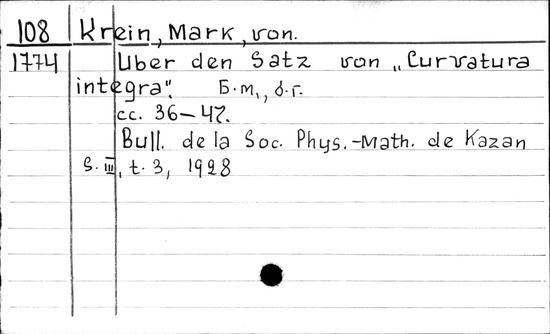 108 Krein, Mark, von.
1774 Uber den Satz von „Curvatura
integra". Б.м., б.г.
cc. 36-47.
Bull. de la Soc. Phys.-Math. de Kazan
S. III, t. 3, 1928